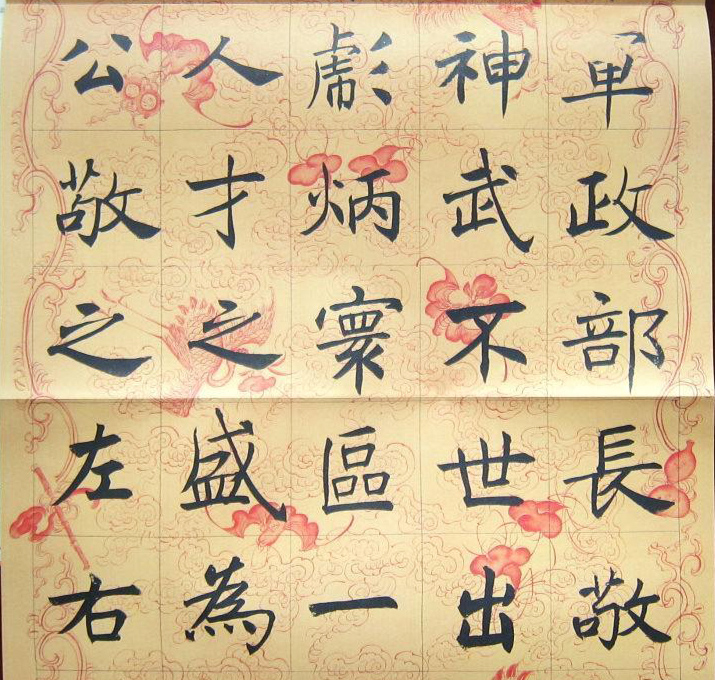 軍政部長敬
神武不世出
彪炳寰區一
人才之盛為
公敬之左右